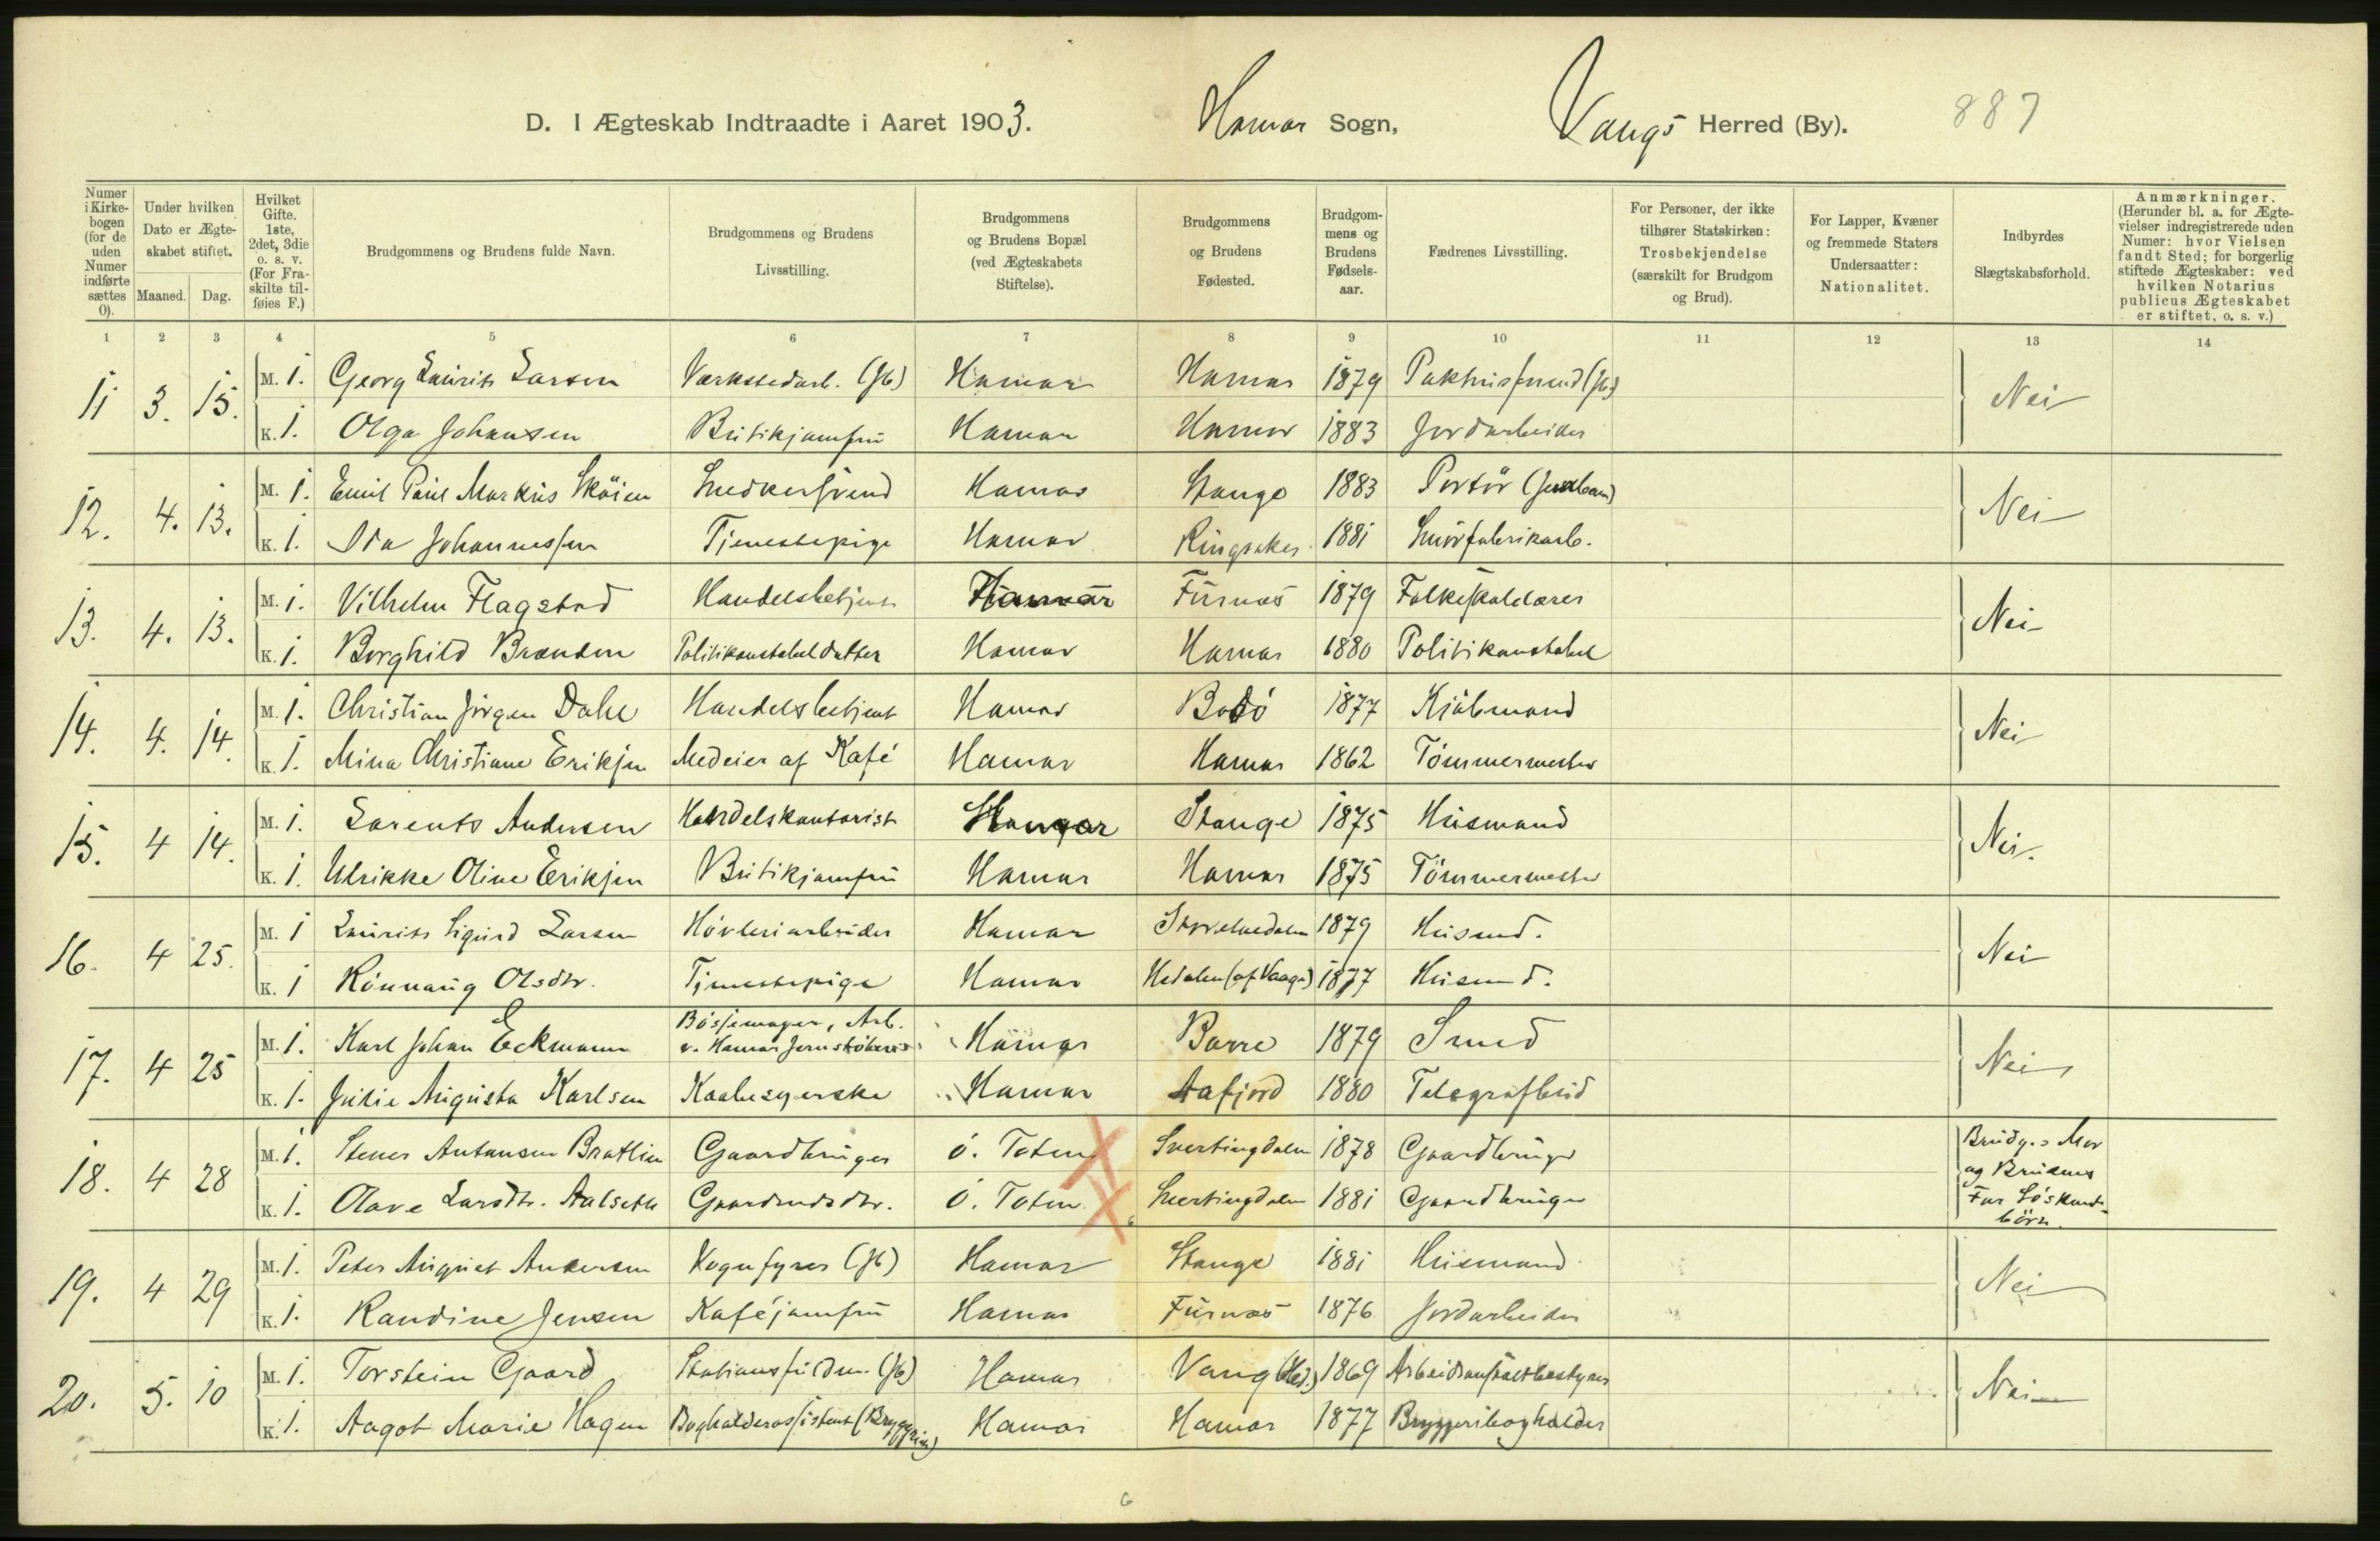 D. I Ægteskab Indtraadte i Aaret 1903. Hamar Sogn, Vangs Herred (By). 887
Numer i Kirkebogen (for de uden Numer indførte sættes 0).
Under hvilken Dato er Ægteskabet stiftet.
Maaned. Dag.
Hvilket Gifte. 1ste, 2det, 3die o. s. v. (For Fraskilte tilføies F.)
Brudgommens og Brudens fulde Navn.
Brudgommens og Brudens Livsstilling.
Brudgommens og Brudens Bopæl (ved Ægteskabets Stiftelse).
Brudgommens og Brudens Fødested.
Brudgommens og Brudens Fødselsaar.
Fædrenes Livsstilling.
For Personer, der ikke tilhører Statskirken: Trosbekjendelse (særskilt for Brudgom og Brud).
For Lapper, Kvæner og fremmede Staters Undersaatter: Nationalitet.
Indbyrdes Slægtskabsforhold.
Anmærkninger. (Herunder bl. a. for Ægtevielser indregistrerede uden Numer: hvor Vielsen fandt Sted; for borgerlig stiftede Ægteskaber: ved hvilken Notarius publicus Ægteskabet er stiftet, o. s. v.)
1 2 3 4 5 6 7 8 9 10 11 12 13 14
11 3. 15. M. 1. Georg Laurits Larsen Værkstedarb. (Jb) Hamar Hamar 1879 (Jb) Nei
K. 1. Olga Johansen Butikjomfru Hamar Hamar 1883 Jordarbeider
12. 4. 13. M. 1. Emil Paul Markus Sköien Snedkersvend Hamar Stange 1883 Portör (Jernban) Nei
K. 1. Ida Johannessen Tjenestepige Hamar Ringsaker 1881 Smörfabrikarb.
13. 4. 13. M. 1. Vilhelm Flagstad Handelsbetjent Hamar Furnæs 1879 Folkeskolelærer Nei
K. 1. Borghild Brænden Politikonstabeldatter Hamar Hamar 1880 Politikonstabel
14. 4. 14. M. 1. Christian Jörgen Dahl Handelsbetjent Hamar Bodó 1877 Kjöbmand Nei
K. 1. Mina Christiane Eriksen Medeier af Kafé Hamar Hamar 1862 Tömmermester
15. 4 14. M. 1. Lorents Andersen Handelskontorist Hamar Stange 1875 Husmand Nei.
K. 1. Ulrikke Oline Eriksen Butikjomfru Hamar Hamar 1875 Tömmermester
16. 4 25. M. 1 Laurits Sigurd Larsen Hövleriarbeider Hamar Storelvedalen 1879 Husmd. Nei
K. 1 Rönnaug Olsdtr. Tjenestepige Hamar Hedalen (af Vaage) 1877 Husmd.
17. 4 25 M. 1. Karl Johan Eckmann Bössemager, Arb. v. Hamar Jernstöberi Hamar Borre 1879 Smed Nei
K. 1. Julie Augusta Karlsen Kaabesyerske Hamar Aafjord 1880 Telegrafbud
18. 4 28 M. 1. Stener Antonsen Bratlien Gaardbruger Ö. Toten Snertingdalen 1878 Gaardbruger Brudg.s Mor og Brudens Far Söskendebörn.
K. 1. Olave Larsdtr. Aalseth Gaardmdsdtr. Ö. Toten Snertingdalen 1881 Gaardbruger
19. 4 29 M. 1. Peter August Andersen Vognfyrer (Jb) Hamar Stange 1881 Husmand Nei
K. 1. Randine Jensen Kaféjomfru Hamar Furnæs 1876 Jordarbeider
20. 5. 10 M. 1. Torstein Gaard Stationsfuldm. (Jb) Hamar Vang (Hed.) 1869 Arbeidsanstaltbestyrer Nei
K. 1. Aagot Marie Hagen Bogholderassistent (Bryggeri) Hamar Hamar 1877 Bryggeribogholder
6